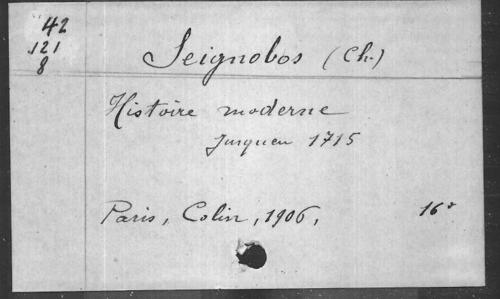 42
121
8
Seignobos (Ch.)
Histoire moderne
Jusqu'en 1715
Paris, Colin, 1906,
16°